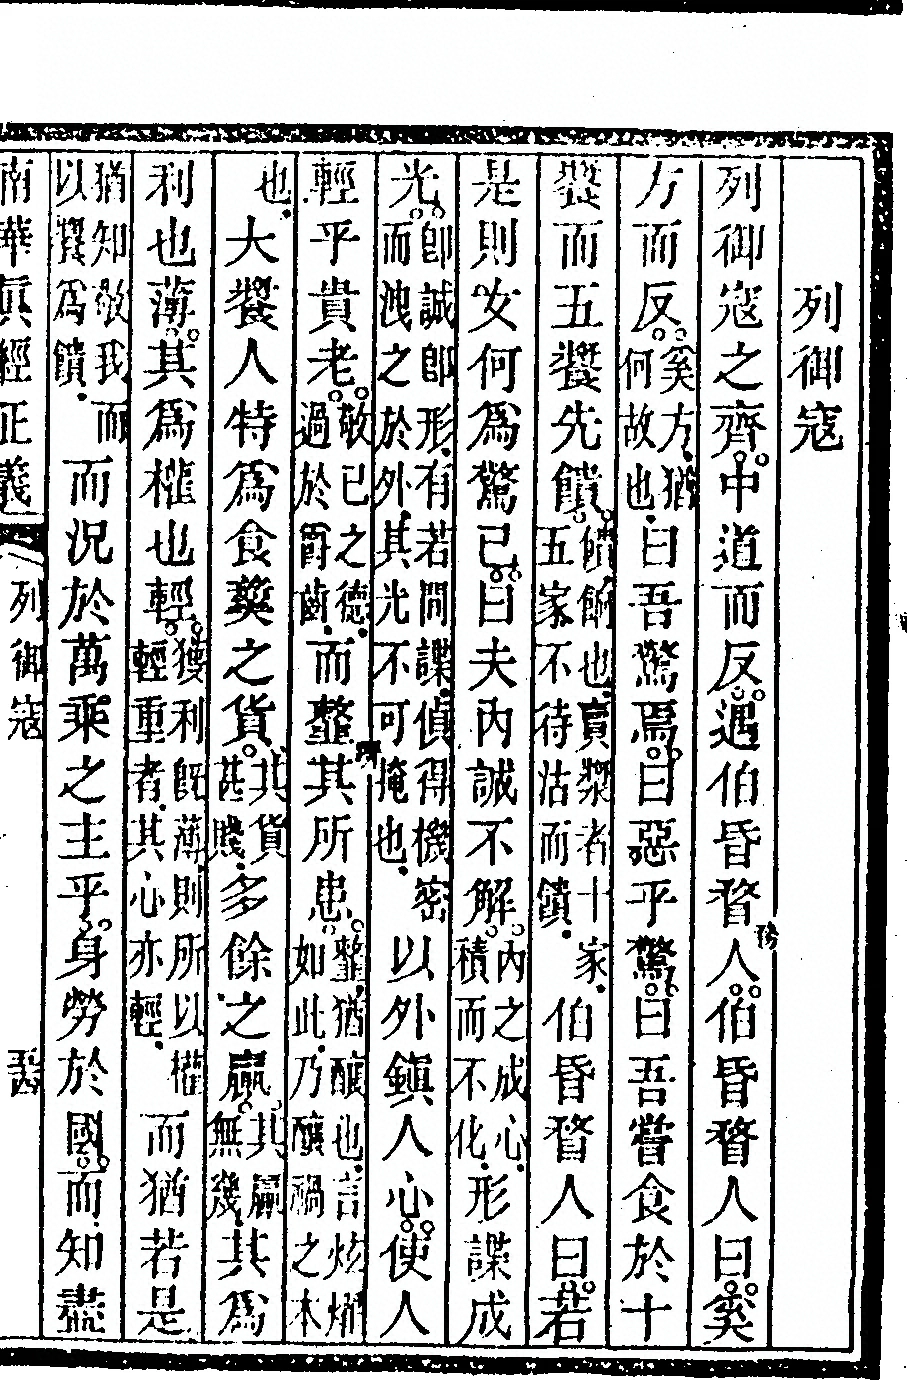 列御寇
列御寇之齊中道而反遇伯昏瞀人伯昏瞀人曰奚
方而反奚方猶何故也曰吾驚焉曰惡乎驚曰吾嘗食於十
漿而五漿先饋饋餉也賣漿者十家五家不待沽而饋伯昏瞀人曰若
是則女何爲驚已曰夫內誠不解內之成心積而不化形諜成
光卽誠卽形有若間諜偵得機密而洩之於外其光不可掩也以外鎮人心使人
輕乎貴老敬已之德過於爵齒而䪡其所患䪡猶釀也言炫燿如此乃釀禍之本
也大漿人特爲食羹之貨其貨甚賤多餘之贏其贏無幾其爲
利也薄其爲權也輕獲利旣薄則所以權輕重者其心亦輕而猶若是
猶知敬我而以漿爲饋而況於萬乘之主乎身勞於國而知盡
南華眞經正義 列御寇